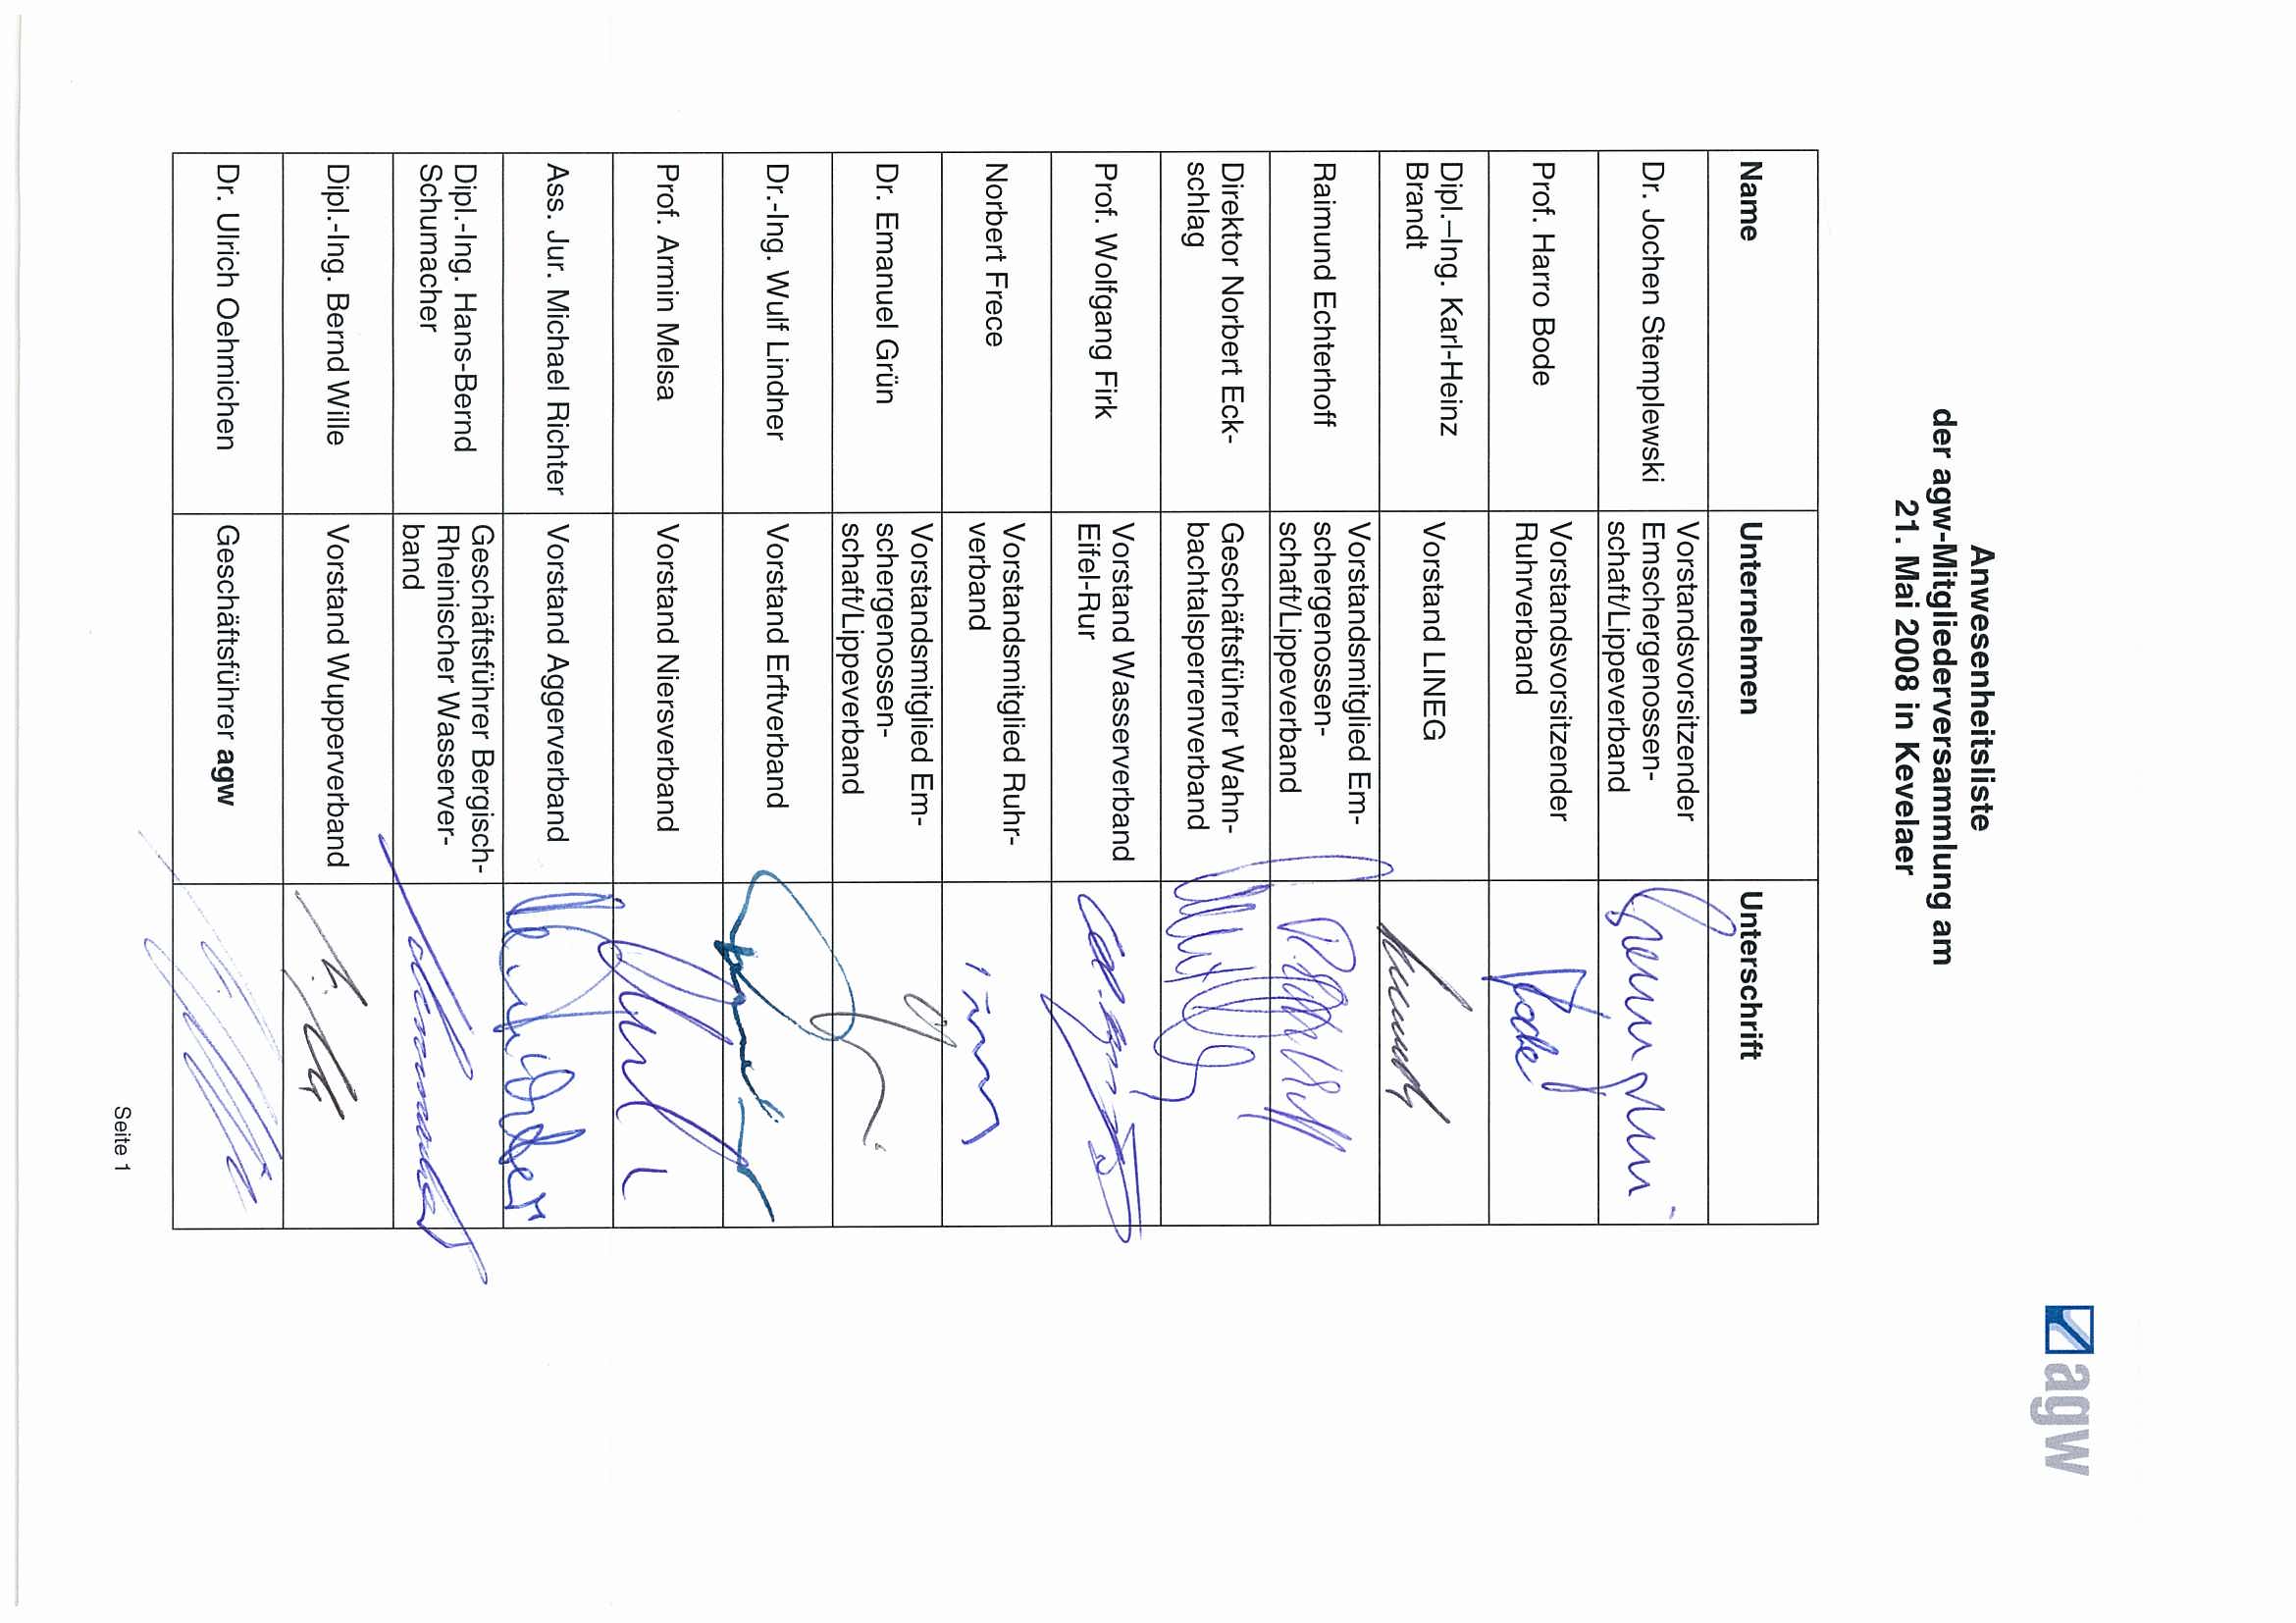 agw
Anwesenheitsliste
der agw-Mitgliederversammlung am
21. Mai 2008 in Kevelaer
Name Unternehmen Unterschrift
Dr. Jochen Stemplewski
Vorstandsvorsitzender
Emschergenossen-
schaft/Lippeverband
Prof. Harro Bode
Vorstandsvorsitzender
Ruhrverband
Bode
Dipl.–Ing. Karl-Heinz
Brandt
Vorstand LINEG
Raimund Echterhoff
Vorstandsmitglied Em-
schergenossen-
schaft/Lippeverband
Direktor Norbert Eck-
schlag
Geschäftsführer Wahn-
bachtalsperrenverband
Prof. Wolfgang Firk
Vorstand Wasserverband
Eifel-Rur
Norbert Frece
Vorstandsmitglied Ruhr-
verband
Dr. Emanuel Grün
Vorstandsmitglied Em-
schergenossen-
schaft/Lippeverband
Dr.-Ing. Wulf Lindner
Vorstand Erftverband
Prof. Armin Melsa
Vorstand Niersverband
Ass. Jur. Michael Richter
Vorstand Aggerverband
Dipl.-Ing. Hans-Bernd
Schumacher
Geschäftsführer Bergisch-
Rheinischer Wasserver-
band
Dipl.-Ing. Bernd Wille
Vorstand Wupperverband
Dr. Ulrich Oehmichen
Geschäftsführer agw
Seite 1